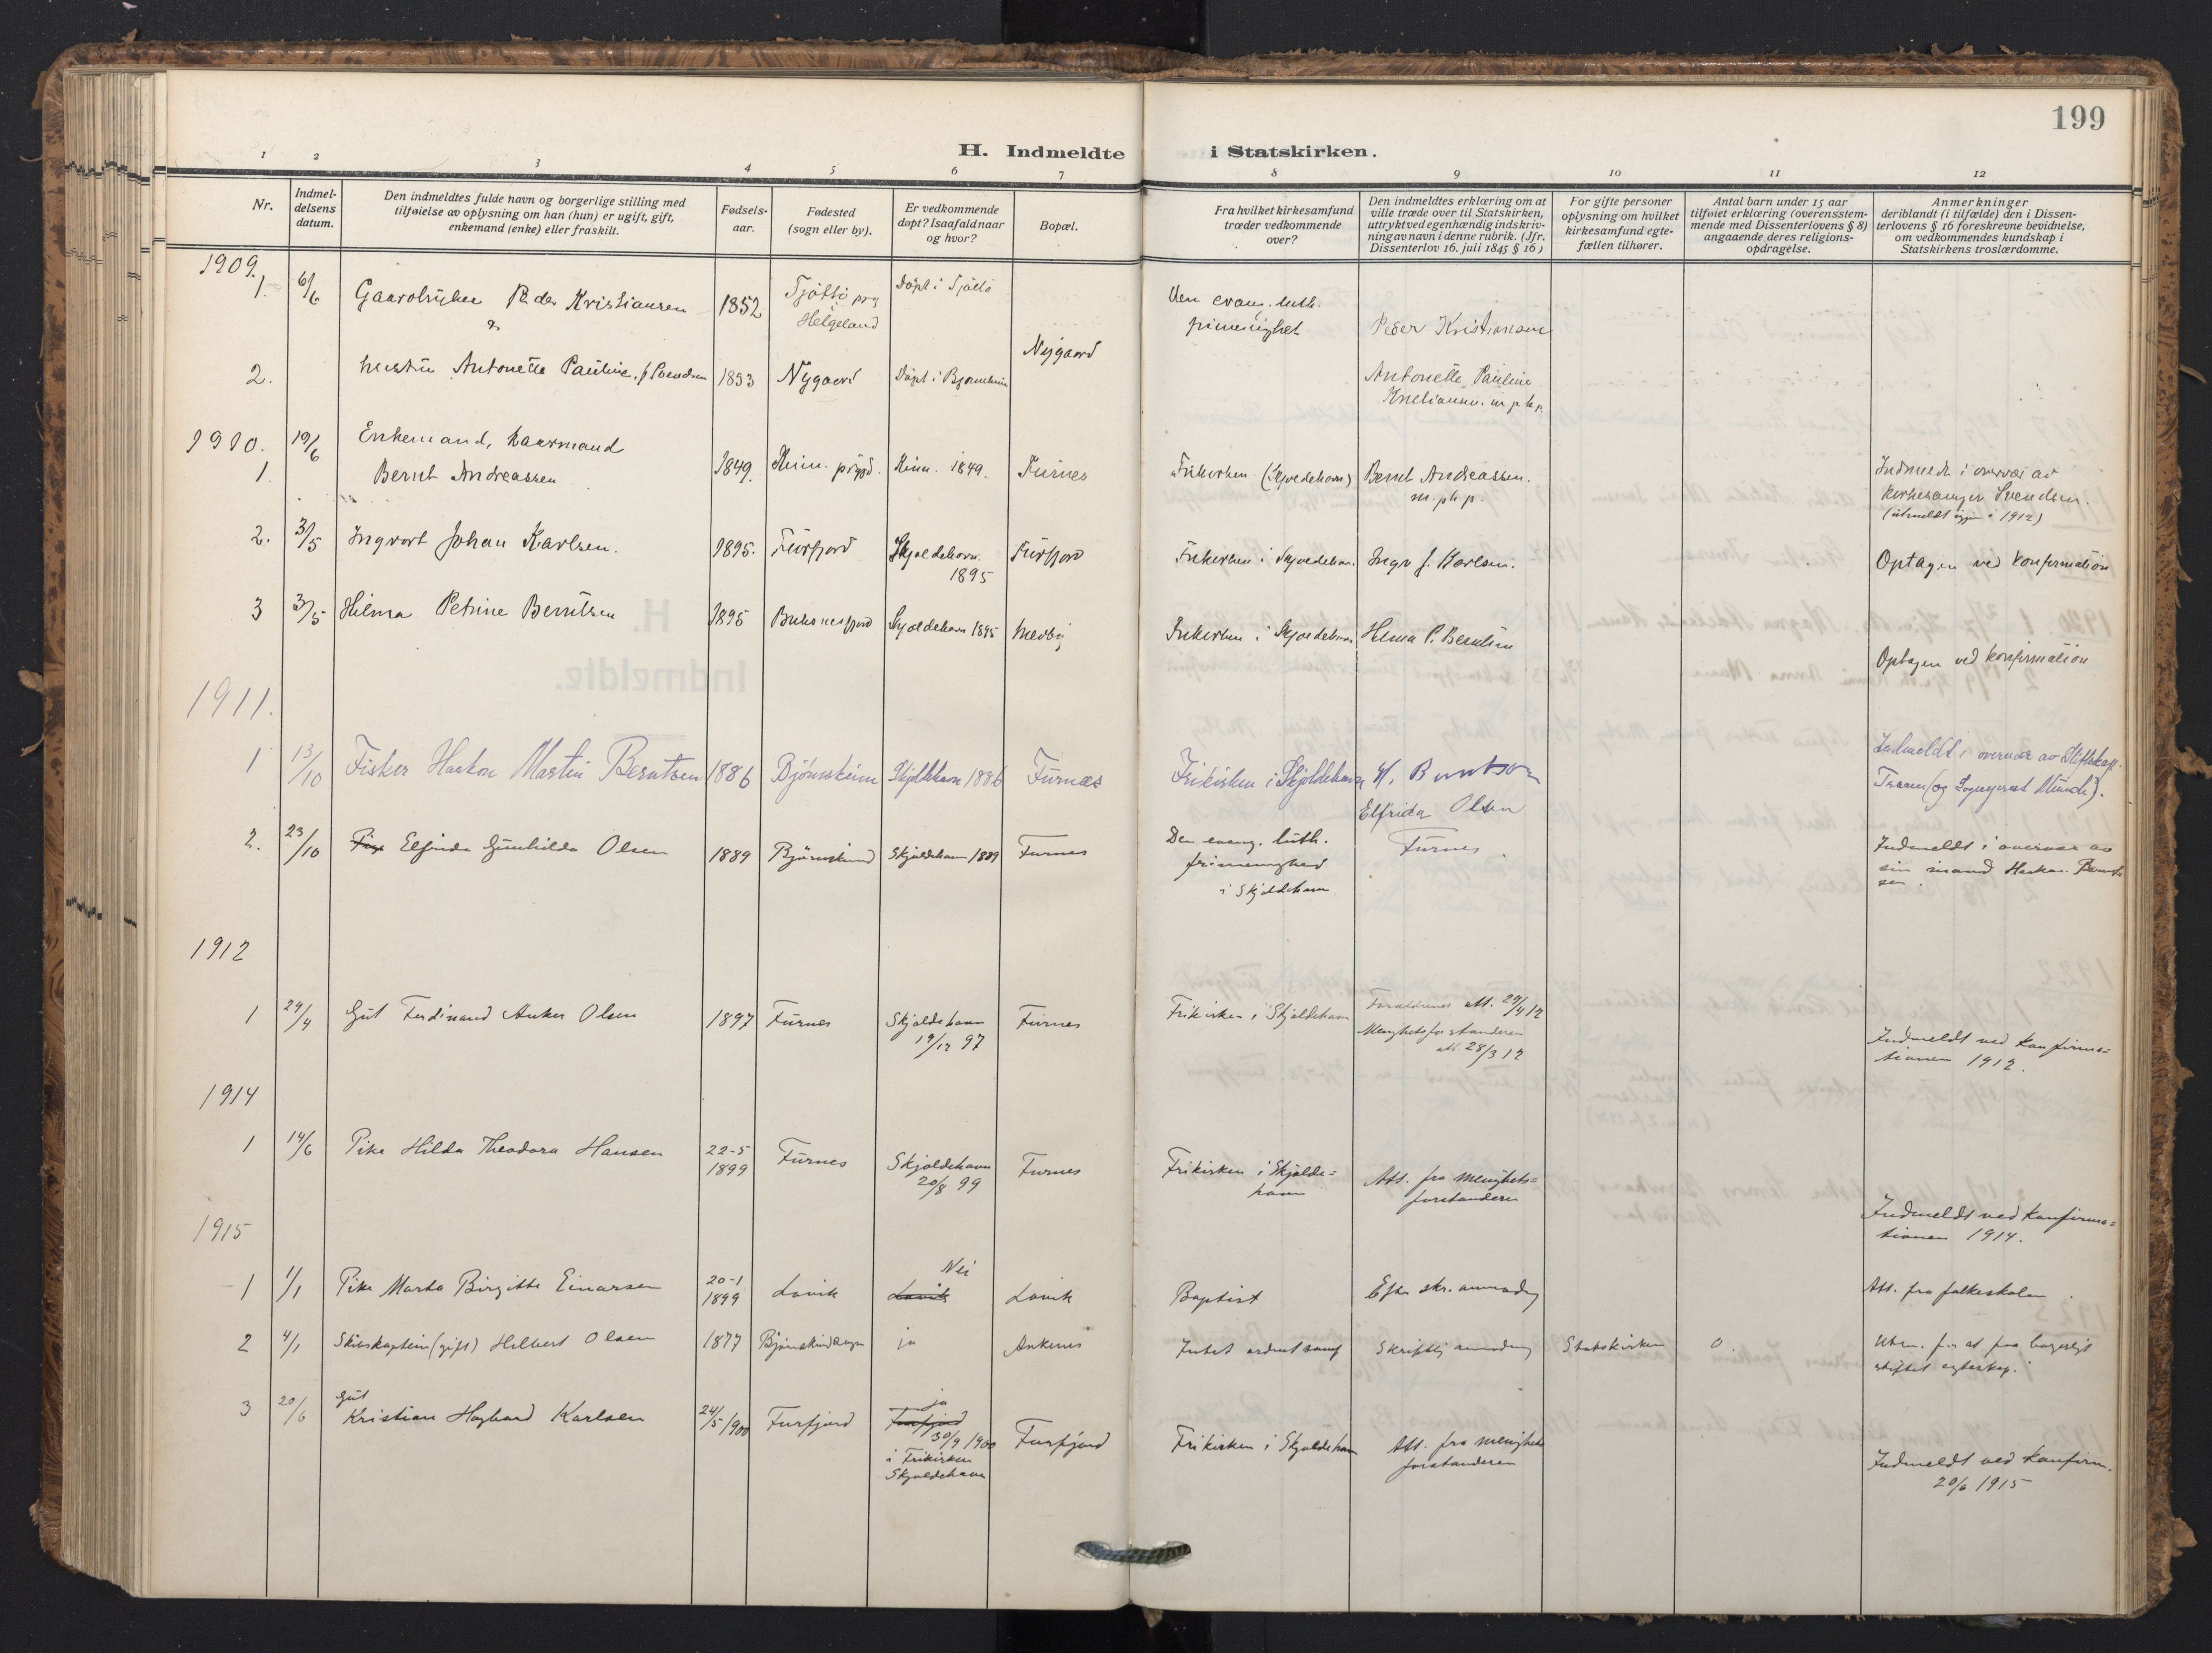 199
H. Indmeldte i Statskirken.
1 2 3 4 5 6 7 8 9 10 11 12
Nr.
Indmel-
delsens
datum.
Den indmeldtes fulde navn og borgerlige stilling med
tilføielse av oplysning om han (hun) er ugift, gift,
enkemand (enke) eller fraskilt.
Fødsels-
aar.
Fødested
(sogn eller by).
Er vedkommende
døpt? Isaafald naar
og hvor?
Bopæl.
Fra hvilket kirkesamfund
træder vedkommende
over?
Den indmeldtes erklæring om at
ville træde over til Statskirken,
uttrykt ved egenhændig indskriv-
ning av navn i denne rubrik. (Jfr.
Dissenterlov 16. juli 1845 § 16)
For gifte personer
oplysning om hvilket
kirkesamfund egte-
fællen tilhører.
Antal barn under 15 aar
tilføiet erklæring (overensstem-
mende med Dissenterlovens § 8)
angaaende deres religions-
opdragelse.
Anmerkninger
deriblandt (i tilfælde) den i Dissen-
terlovens § 16 foreskrevne bevidnelse,
om vedkommendes kundskap i
Statskirkens troslærdomme.
1909.
1. 6/6 Peder Kristiansen 1852 Tjøttö
Helgeland
Døpt i Tjøttö
evang. luth.
Peder Kristiansen
Nygaard
2. hustru Antonette Pauline, f. Svendsen 1853 Nygaard Døpt i
Antonette Pauline
m. p. h. p.
1910.
1. 19/6 Enkemand,
Bernt Andreassen 1849. Kinn. 1849. Furnes
Bernt Andreassen.
m. p. h. p.
Indmeldt i overvær av
kirkesanger Svendsen.
(utmeldt igjen i 1912)
2. 3/5 Ingvart Johan Karlsen. 1895. Furfjord Skjoldehavn
1895
Furfjord Frikirken i Ingv. J. Karlsen. Optagen ved konfirmation
3 3/5 Hilma Petrine Berntsen 1895 Skjoldehavn 1895 Medby Frikirken i Skjoldehavn Hilma P. Berntsen
Optagen ved konfirmation
1911.
1 13/10 Fisker Haakon Martin Berntsen 1886 Bjørnskinn Skjoldehavn 1886 Furnæs Frikirken i Skjoldehavn, H. Berntsen
Indmeldt i overvær av
2. 23/10 Elfrida Gunhilda Olsen 1889 Bjørnskind Skjoldehavn 1889 Furnes
Den evang. luth.
frimenighed
i Skjoldehavn
Elfrida Olsen
Furnes.
Indmeldt i overvær av
sin mand Haakon Bernt-
sen.
1912
1 29/4 Gut Ferdinand Anker Olsen 1897 Furnes Skjoldehavn
19/12 97
Furnes Frikirken i Skjoldehavn
Forældrenes att. 29/4 12
Menighetsforstanderen
att. 28/3 12
Indmeldt ved konfirma=
tionen 1912.
1914
1 14/6 Pike Hilda Theodora Hansen 22-5
1899
Furnes Skjoldehavn
20/8 99
Furnes Frikirken i Skjolde=
havn
Att. fra menighets=
forstanderen
Indmeldt ved konfirma=
tionen 1914.
1915
1 1/1 Pike Marta Birgitte Einarsen 20-1
1899
Lovik Nei
Lovik
Lovik Baptist Efter skr. anmodng Att. fra folkeskolen
2 4/1 Skibskaptein (gift) Hilbert Olsen 1877 ja Ankenes Intet Skriftlig anmodning Statskirken 0.
Utm. for at faa borgerlig
stiftet egteskap.
3 20/6 Gut
Kristian Hagbard Karlsen 24/5 1900 Furfjord ja
Furfjord
30/9 1900
i Frikirken
Skjoldehavn
Furfjord Frikirken i Skjoldehavn
Att. fra menighets
forstanderen
Indmeldt ved konfirm.
20/6 1915